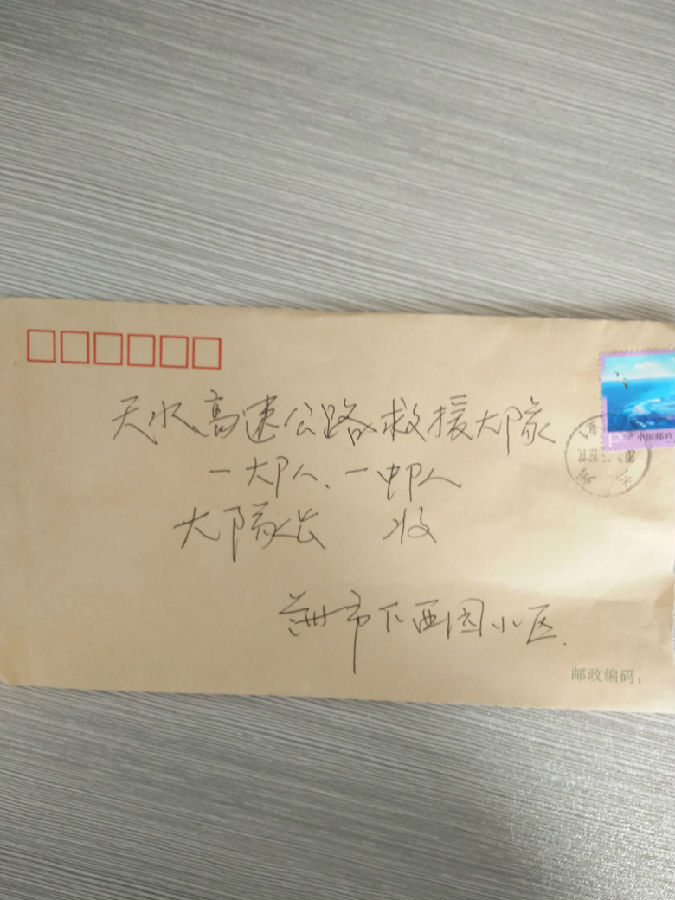 天水高速公路救援大队
一大队、一中队
大队长 收
兰州市下西园小区.
邮政编码:
中国邮政